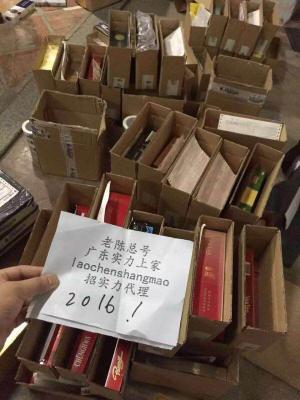 老陈总号
广东实力上家
laochenshangmao
招实力代理
2016！